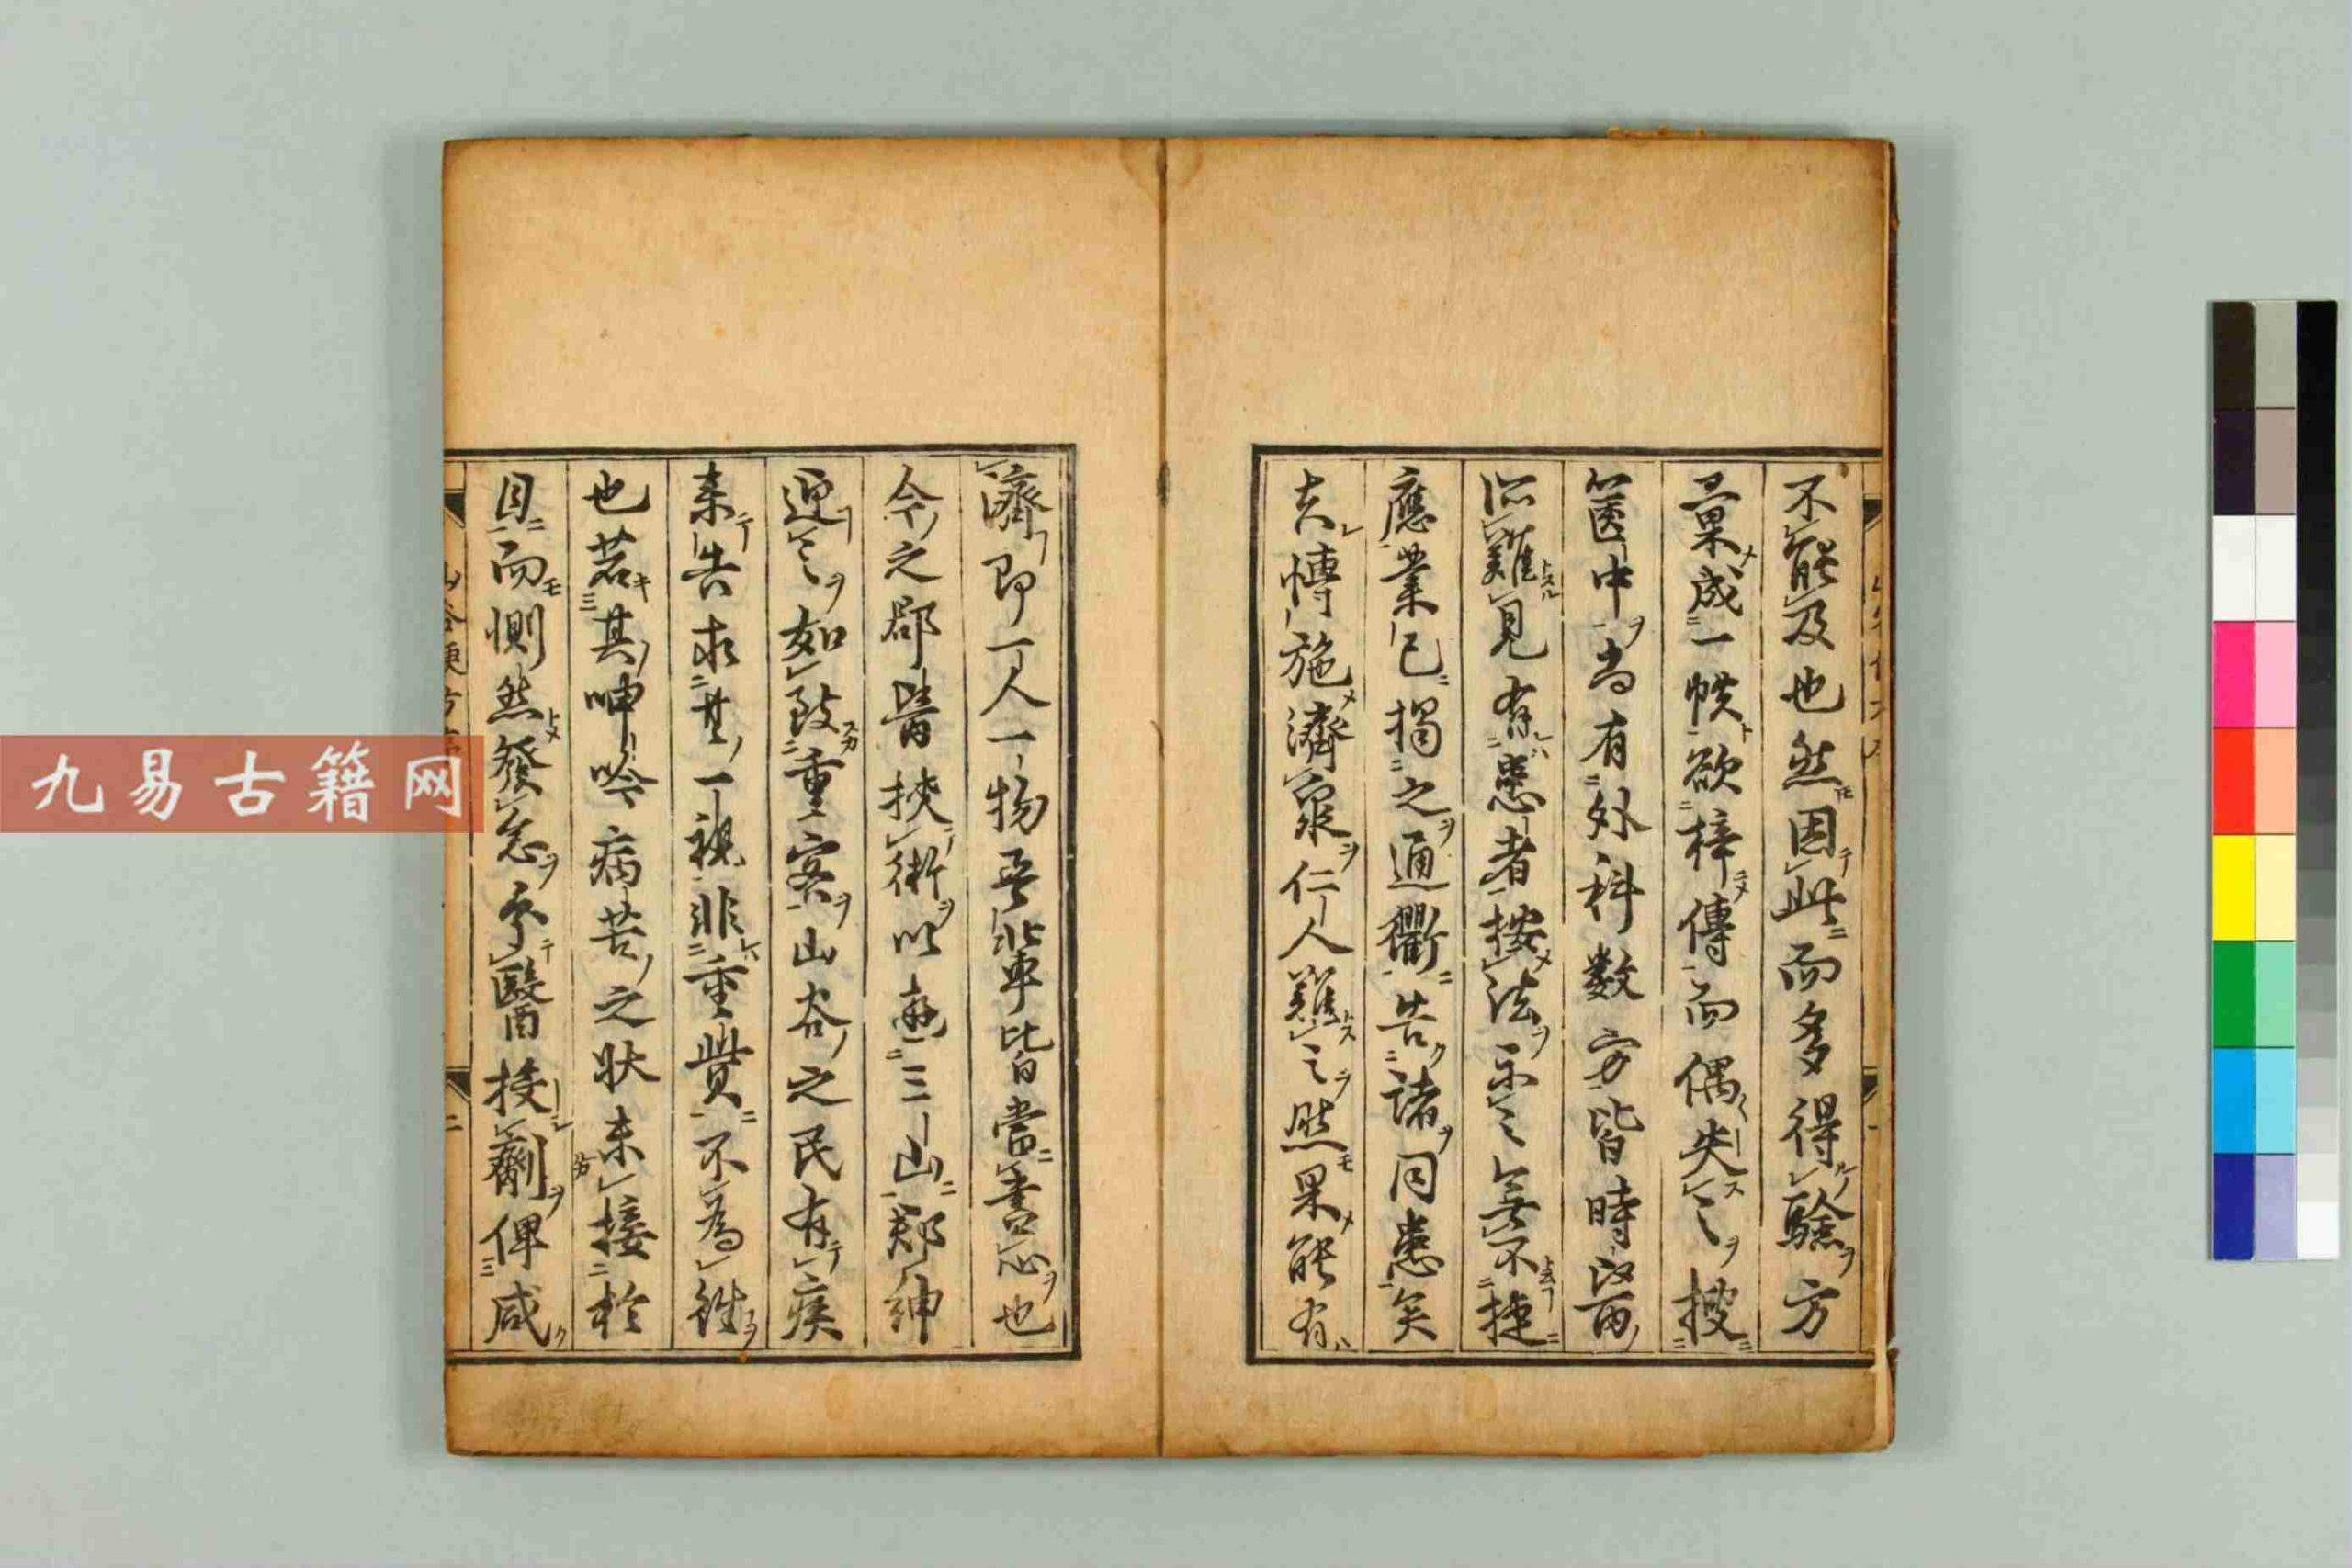 不能及也然因此而多得驗方
彙成一帙欲梓傳而偶失之搜
篋中尚有外科数方皆時醫
所難見有患者按法示之無不捷
應業已揭之通衢告諸同患矣
夫博施濟衆仁人難之然果能有
濟即一人一物吾輩皆當盡心也
今之郡醫挾術以遊三山鄭紳
迎之如致重客山谷之民有疾
来告求其一視非重貲不為往
也若其呻吟病苦之状未接於
目而惻然發念予醫授劑俾咸
二
九易古籍网